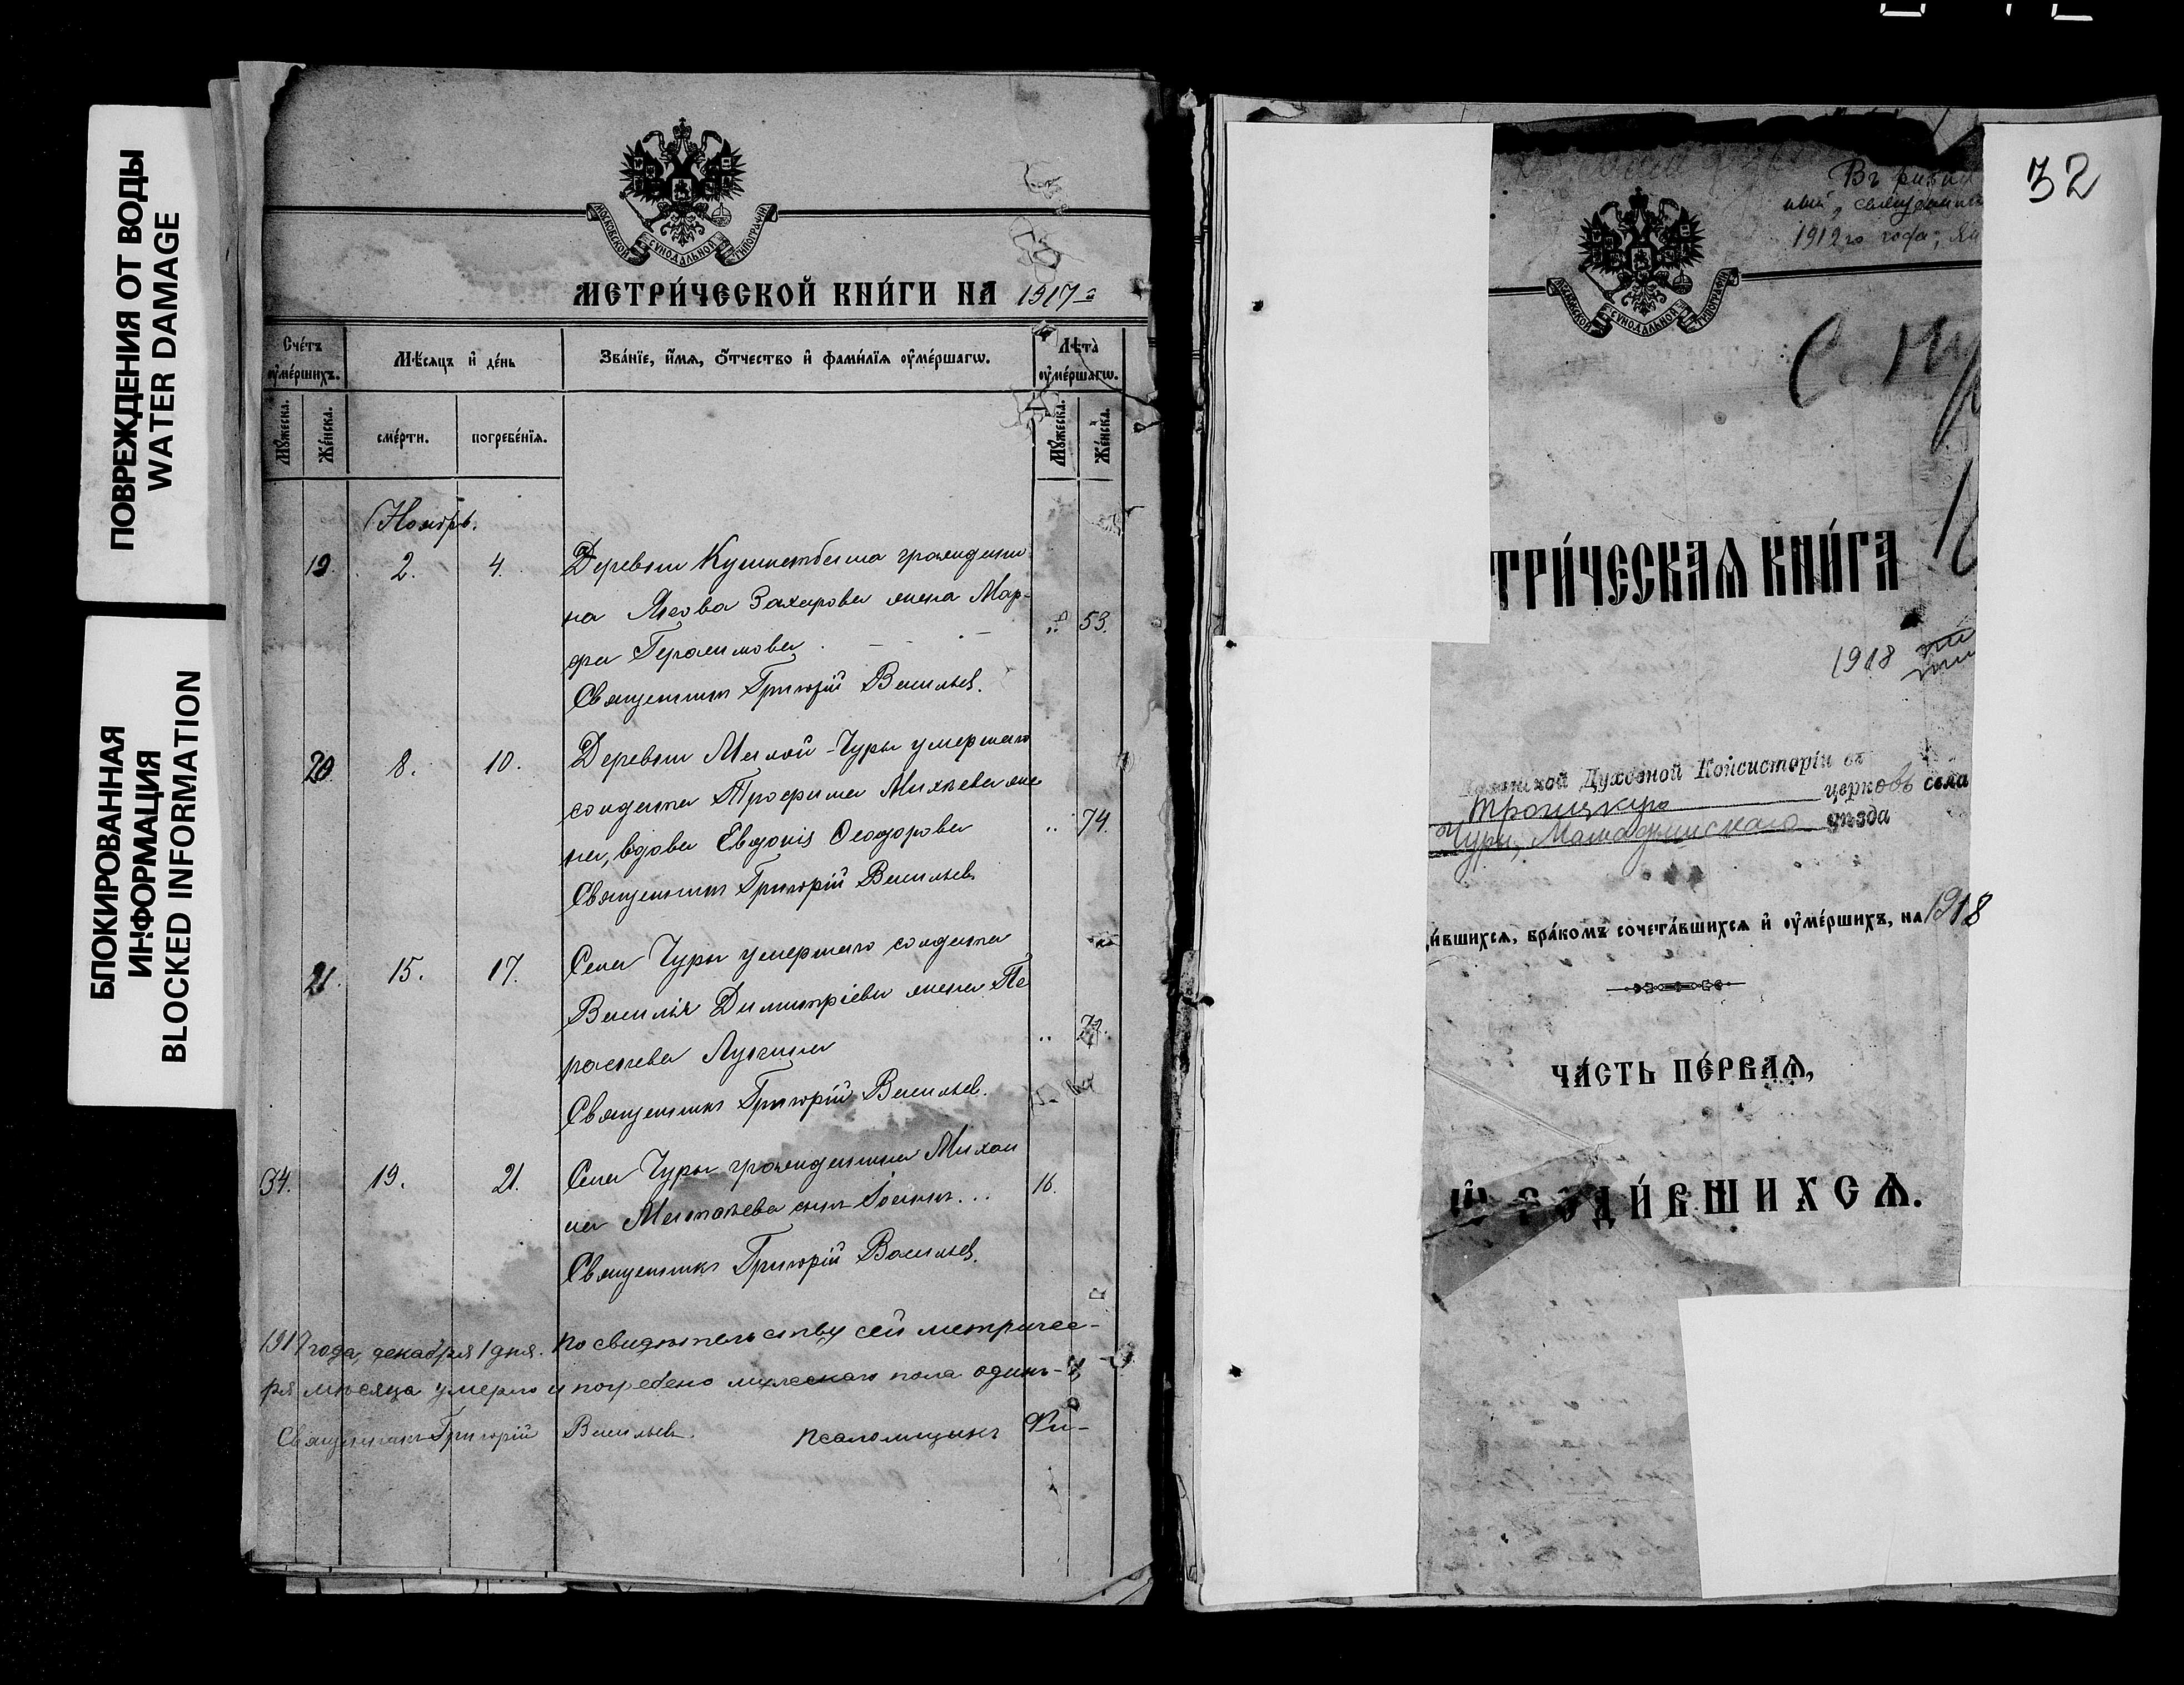 ПОВРЕЖДЕНИЯ ОТ ВОДЫ
WATER DAMAGE
БЛОКИРОВАННАЯ
ИНФОРМАЦИЯ
BLOCKED INFORMATION
МОСКОВСКОЙ СѴНОДАЛЬНОЙ ТИПОГРАФІИ
МЕТРИ́ЧЕСКОЙ КНИ́ГИ НА 1917 г
Сче́тъ ᲂу҆ме́ршихъ.
Мѣ́сяцъ и҆ де́нь
Зва́нїе, и҆́мѧ, ѻ҆́тчество и҆ фами́лїѧ ᲂу҆ме́ршагѡ.
Лѣ́та ᲂу҆ме́ршагѡ.
Мꙋ́жеска.
Же́нска.
сме́рти.
погребе́нїѧ.
Мꙋ́жеска.
Же́нска.
Ноябрь.
19. 2. 4. Деревни гражданина
на Якова Захарова жена Мар-
фа Герасимова 53.
Священникъ Григорій Васильев.
20 8. 10. Деревни Малой-Чуры умершаго
солдата Трофима Михеева же
на, вдова Евдокія Ѳеодорова 74.
Священникъ Григорій Васильев
21. 15. 17. Села Чуры умершаго солдата
Василія Димитріева жена Пе
Священникъ Григорій Васильев.
34. 19. 21. Села Чуры гражданина Михаи
ла Матвѣева сынъ 16.
Священникъ Григорій Васильев.
1917 года, декабря 1 дня. По свидѣтельству сей метричес-
ря мѣсяца умерло и погребено мужескаго пола одинъ-
Священникъ Григорій Васильевъ. Псаломщикъ
32
Въ
1912го года;
МОСКОВСКОЙ СѴНОДАЛЬНОЙ ТИПОГРАФІИ
С.
ТРИ́ЧЕСКАѦ КНИ́ГА
1918
Духовной Консисторіи въ
Троицкую церковь села
Чуры, Мамадышскаго уѣзда
и́вшихсѧ, бра́комъ сочета́вшихсѧ и҆ ᲂу҆ме́ршихъ, на 1918
ЧА́СТЬ ПЕ́РВАѦ,
Ѡ҆ РОДИ́ВШИХСѦ.